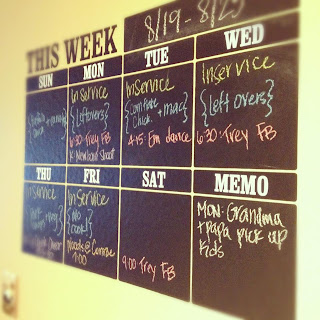 THIS WEEK
8/19-8/25
SUN
MON
Inservice
{Leftovers}
6:30-Trey FB
K-Newborn Shoot
TUE
Inservice
+ mac
4:45-Em dance
WED
Inservice
{Left overs}
6:30-Trey FB
THU
Inservice
FRI
Inservice
{No
cook!}
7:00
SAT
9:00 Trey FB
MEMO
Mon-Grandma
+ papa pick up
Kids